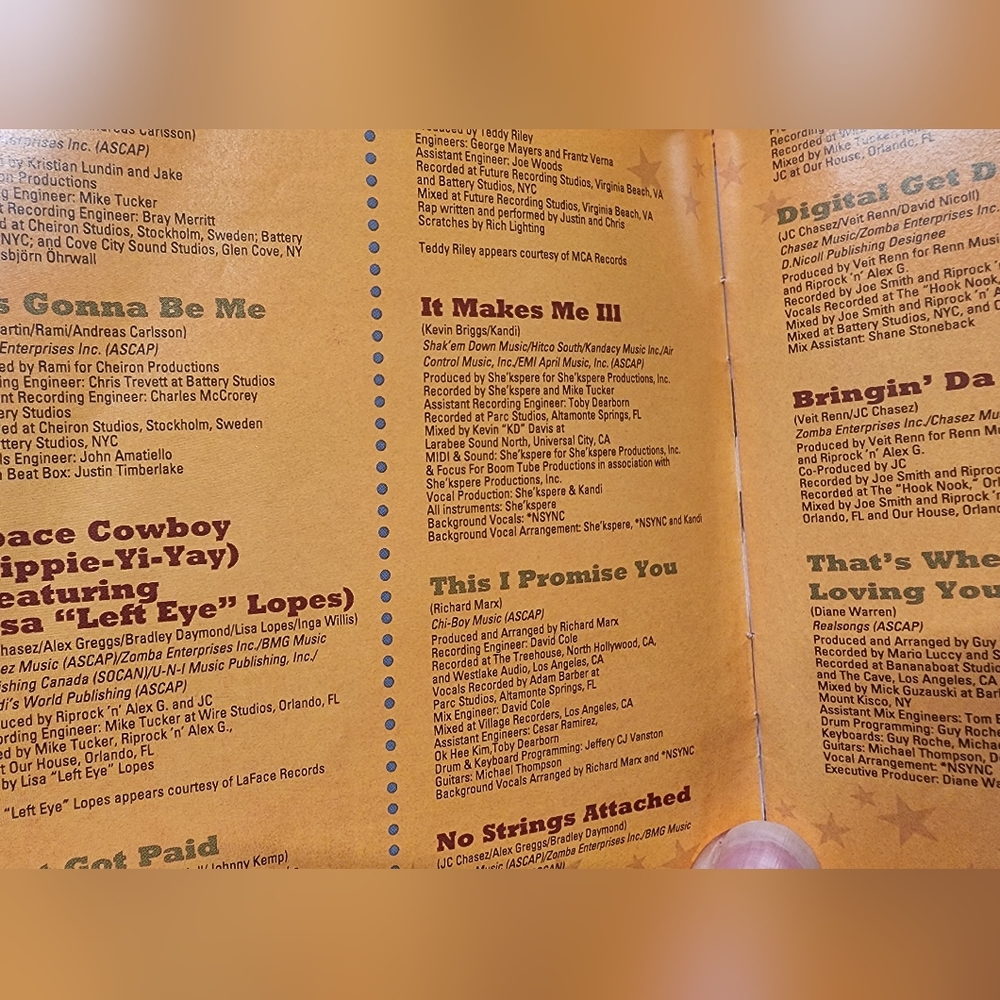 Carlsson)
Enterprises Inc. (ASCAP)
by Kristian Lundin and Jake
Productions
Engineer: Mike Tucker
Recording Engineer: Bray Merritt
at Cheiron Studios, Stockholm, Sweden; Battery
NYC; and Cove City Sound Studios, Glen Cove, NY
sbjörn Öhrwall
s Gonna Be Me
artin/Rami/Andreas Carlsson)
Enterprises Inc. (ASCAP)
ed by Rami for Cheiron Productions
ing Engineer: Chris Trevett at Battery Studios
nt Recording Engineer: Charles McCrorey
ery Studios
ed at Cheiron Studios, Stockholm, Sweden
ttery Studios, NYC
ls Engineer: John Amatiello
n Beat Box: Justin Timberlake
pace Cowboy
ippie-Yi-Yay)
eaturing
sa “Left Eye” Lopes)
hasez/Alex Greggs/Bradley Daymond/Lisa Lopes/Inga Willis)
ez Music (ASCAP)/Zomba Enterprises Inc./BMG Music
ishing Canada (SOCAN)/U-N-I Music Publishing, Inc./
di’s World Publishing (ASCAP)
uced by Riprock ’n’ Alex G. and JC
ording Engineer: Mike Tucker at Wire Studios, Orlando, FL
ed by Mike Tucker, Riprock ’n’ Alex G.,
t Our House, Orlando, FL
by Lisa “Left Eye” Lopes
“Left Eye” Lopes appears courtesy of LaFace Records
Got Paid
/Johnny Kemp)
Produced by Teddy Riley
Engineers: George Mayers and Frantz Verna
Assistant Engineer: Joe Woods
Recorded at Future Recording Studios, Virginia Beach, VA
and Battery Studios, NYC
Mixed at Future Recording Studios, Virginia Beach, VA
Rap written and performed by Justin and Chris
Scratches by Rich Lighting
Teddy Riley appears courtesy of MCA Records
It Makes Me Ill
(Kevin Briggs/Kandi)
Shak’em Down Music/Hitco South/Kandacy Music Inc./Air
Control Music, Inc./EMI April Music, Inc. (ASCAP)
Produced by She’kspere for She’kspere Productions, Inc.
Recorded by She’kspere and Mike Tucker
Assistant Recording Engineer: Toby Dearborn
Recorded at Parc Studios, Altamonte Springs, FL
Mixed by Kevin “KD” Davis at
Larabee Sound North, Universal City, CA
MIDI & Sound: She’kspere for She’kspere Productions, Inc.
& Focus For Boom Tube Productions in association with
She’kspere Productions, Inc.
Vocal Production: She’kspere & Kandi
All instruments: She’kspere
Background Vocals: *NSYNC
Background Vocal Arrangement: She’kspere, *NSYNC and Kandi
This I Promise You
(Richard Marx)
Chi-Boy Music (ASCAP)
Produced and Arranged by Richard Marx
Recording Engineer: David Cole
Recorded at The Treehouse, North Hollywood, CA,
and Westlake Audio, Los Angeles, CA
Vocals Recorded by Adam Barber at
Parc Studios, Altamonte Springs, FL
Mix Engineer: David Cole
Mixed at Village Recorders, Los Angeles, CA
Assistant Engineers: Cesar Ramirez,
Ok Hee Kim,Toby Dearborn
Drum & Keyboard Programming: Jeffery CJ Vanston
Guitars: Michael Thompson
Background Vocals Arranged by Richard Marx and *NSYNC
No Strings Attached
(JC Chasez/Alex Greggs/Bradley Daymond)
Music (ASCAP)/Zomba Enterprises Inc./BMG Music
Recording
Mixed by Mike Tucker
JC at Our House, Orlando, FL
Digital Get D
(JC Chasez/Veit Renn/David Nicoll)
Chasez Music/Zomba Enterprises Inc.
D.Nicoll Publishing Designee
Produced by Veit Renn for Renn Musi
and Riprock ’n’ Alex G.
Recorded by Joe Smith and Riprock ’n
Vocals Recorded at The “Hook Nook,
Mixed by Joe Smith and Riprock ’n’ A
Mixed at Battery Studios, NYC, and O
Mix Assistant: Shane Stoneback
Bringin’ Da
(Veit Renn/JC Chasez)
Zomba Enterprises Inc./Chasez Mu
Produced by Veit Renn for Renn Mu
and Riprock ’n’ Alex G.
Co-Produced by JC
Recorded by Joe Smith and Riproc
Recorded at The “Hook Nook,” Orl
Mixed by Joe Smith and Riprock ’n
Orlando, FL and Our House, Orland
That’s Whe
Loving You
(Diane Warren)
Realsongs (ASCAP)
Produced and Arranged by Guy
Recorded by Mario Luccy and S
Recorded at Bananaboat Studio
and The Cave, Los Angeles, CA
Mixed by Mick Guzauski at Bar
Mount Kisco, NY
Assistant Mix Engineers: Tom B
Drum Programming: Guy Roche
Keyboards: Guy Roche, Micha
Guitars: Michael Thompson, D
Vocal Arrangement: *NSYNC
Executive Producer: Diane Wa